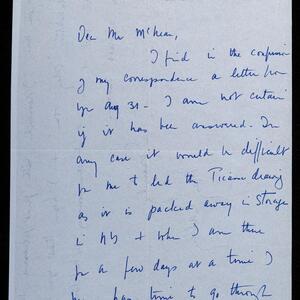 Dear Mr McLean,
I find in the confusion
of my correspondence a letter from
you Aug 31 - I am not certain
if it has been answered. In
any case it would be difficult
for me to lend the Picasso drawing
as it is packed away in storage
in NY + when I am there
for a few days at a time I
has time to go through